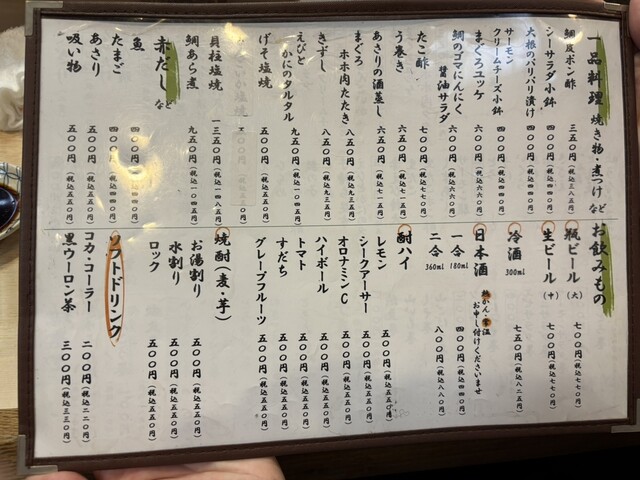 一品料理 焼き物・煮つけ など
鯛皮ポン酢 三五〇円(税込三八五円)
シーサラダ小鉢 四〇〇円(税込四四〇円)
大根のパリパリ漬け 四〇〇円(税込四四〇円)
サーモン
クリームチーズ小鉢 四〇〇円(税込四四〇円)
まぐろユッケ 六〇〇円(税込六六〇円)
鯛のゴマにんにく
醤油サラダ 六〇〇円(税込六六〇円)
たこ酢 七〇〇円(税込七七〇円)
う巻き 六五〇円(税込七一五円)
あさりの酒蒸し 六五〇円(税込七一五円)
まぐろ
ホホ肉たたき 八五〇円(税込九三五円)
きずし 八五〇円(税込九三五円)
えびと
かにのタルタル 九五〇円(税込一〇四五円)
げそ塩焼 五〇〇円(税込五五〇円)
貝柱塩焼 一三五〇円(税込一四八五円)
鯛あら煮 九五〇円(税込一〇四五円)
赤だし など
魚 四〇〇円(税込四四〇円)
たまご 四〇〇円(税込四四〇円)
あさり 五〇〇円(税込五五〇円)
吸い物 五〇〇円(税込五五〇円)
お飲みもの
瓶ビール(大) 七〇〇円(税込七七〇円)
生ビール(中) 七〇〇円(税込七七〇円)
冷酒 300ml 七五〇円(税込八二五円)
日本酒 熱かん・常温
お申し付けくださいませ
一合 180ml 四〇〇円(税込四四〇円)
二合 360ml 八〇〇円(税込八八〇円)
酎ハイ
レモン 五〇〇円(税込五五〇円)
シークアーサー 五〇〇円(税込五五〇円)
オロナミンC 五〇〇円(税込五五〇円)
ハイボール 五〇〇円(税込五五〇円)
トマト 五〇〇円(税込五五〇円)
すだち 五〇〇円(税込五五〇円)
グレープフルーツ 五〇〇円(税込五五〇円)
焼酎(麦・芋)
お湯割り 五〇〇円(税込五五〇円)
水割り 五〇〇円(税込五五〇円)
ロック 五〇〇円(税込五五〇円)
ソフトドリンク
コカ・コーラー 二〇〇円(税込二二〇円)
黒ウーロン茶 三〇〇円(税込三三〇円)